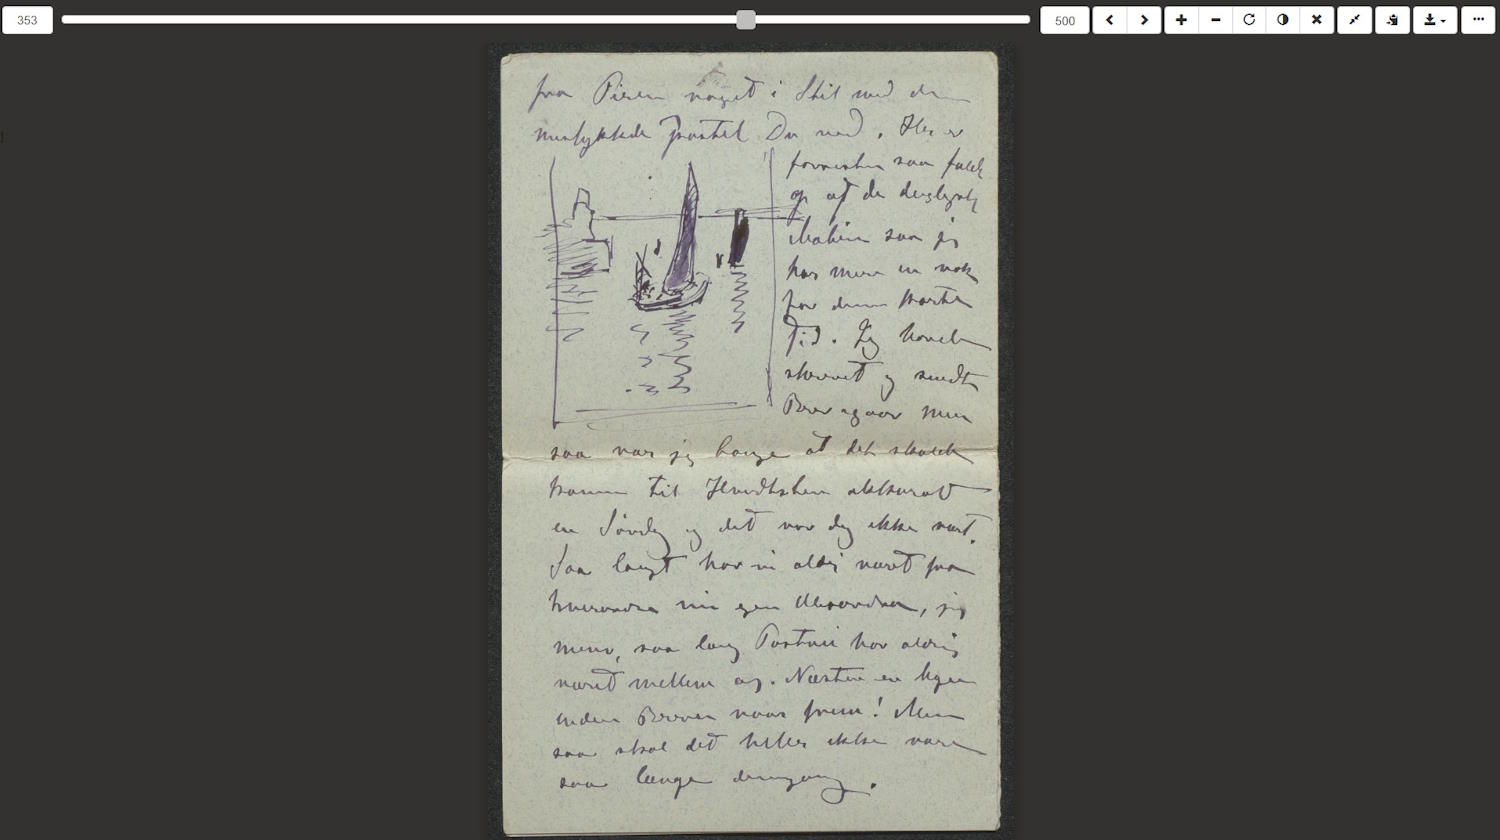 353
500
fra Pieren noget i Stil med den
mislykkede Pastel Du ved. Her er
forresten saa fuldt
op af de dejligste
Motiver saa jeg
har mere en nok
for denne korte
Tid. Jeg havde
skrevet og sendt
Brev igaar men
saa var jeg bange at det skulde
komme til Hvidtsten akkurat
en Søndag og det var dig ikke rart.
Saa langt har vi aldrig været fra
hverandre min egen, jeg
mener, saa lang Postvei har aldrig
været mellem os. Næsten en Uge
inden Brevene naar frem! Men
saa skal det heller ikke vare
saa længe dennegang.